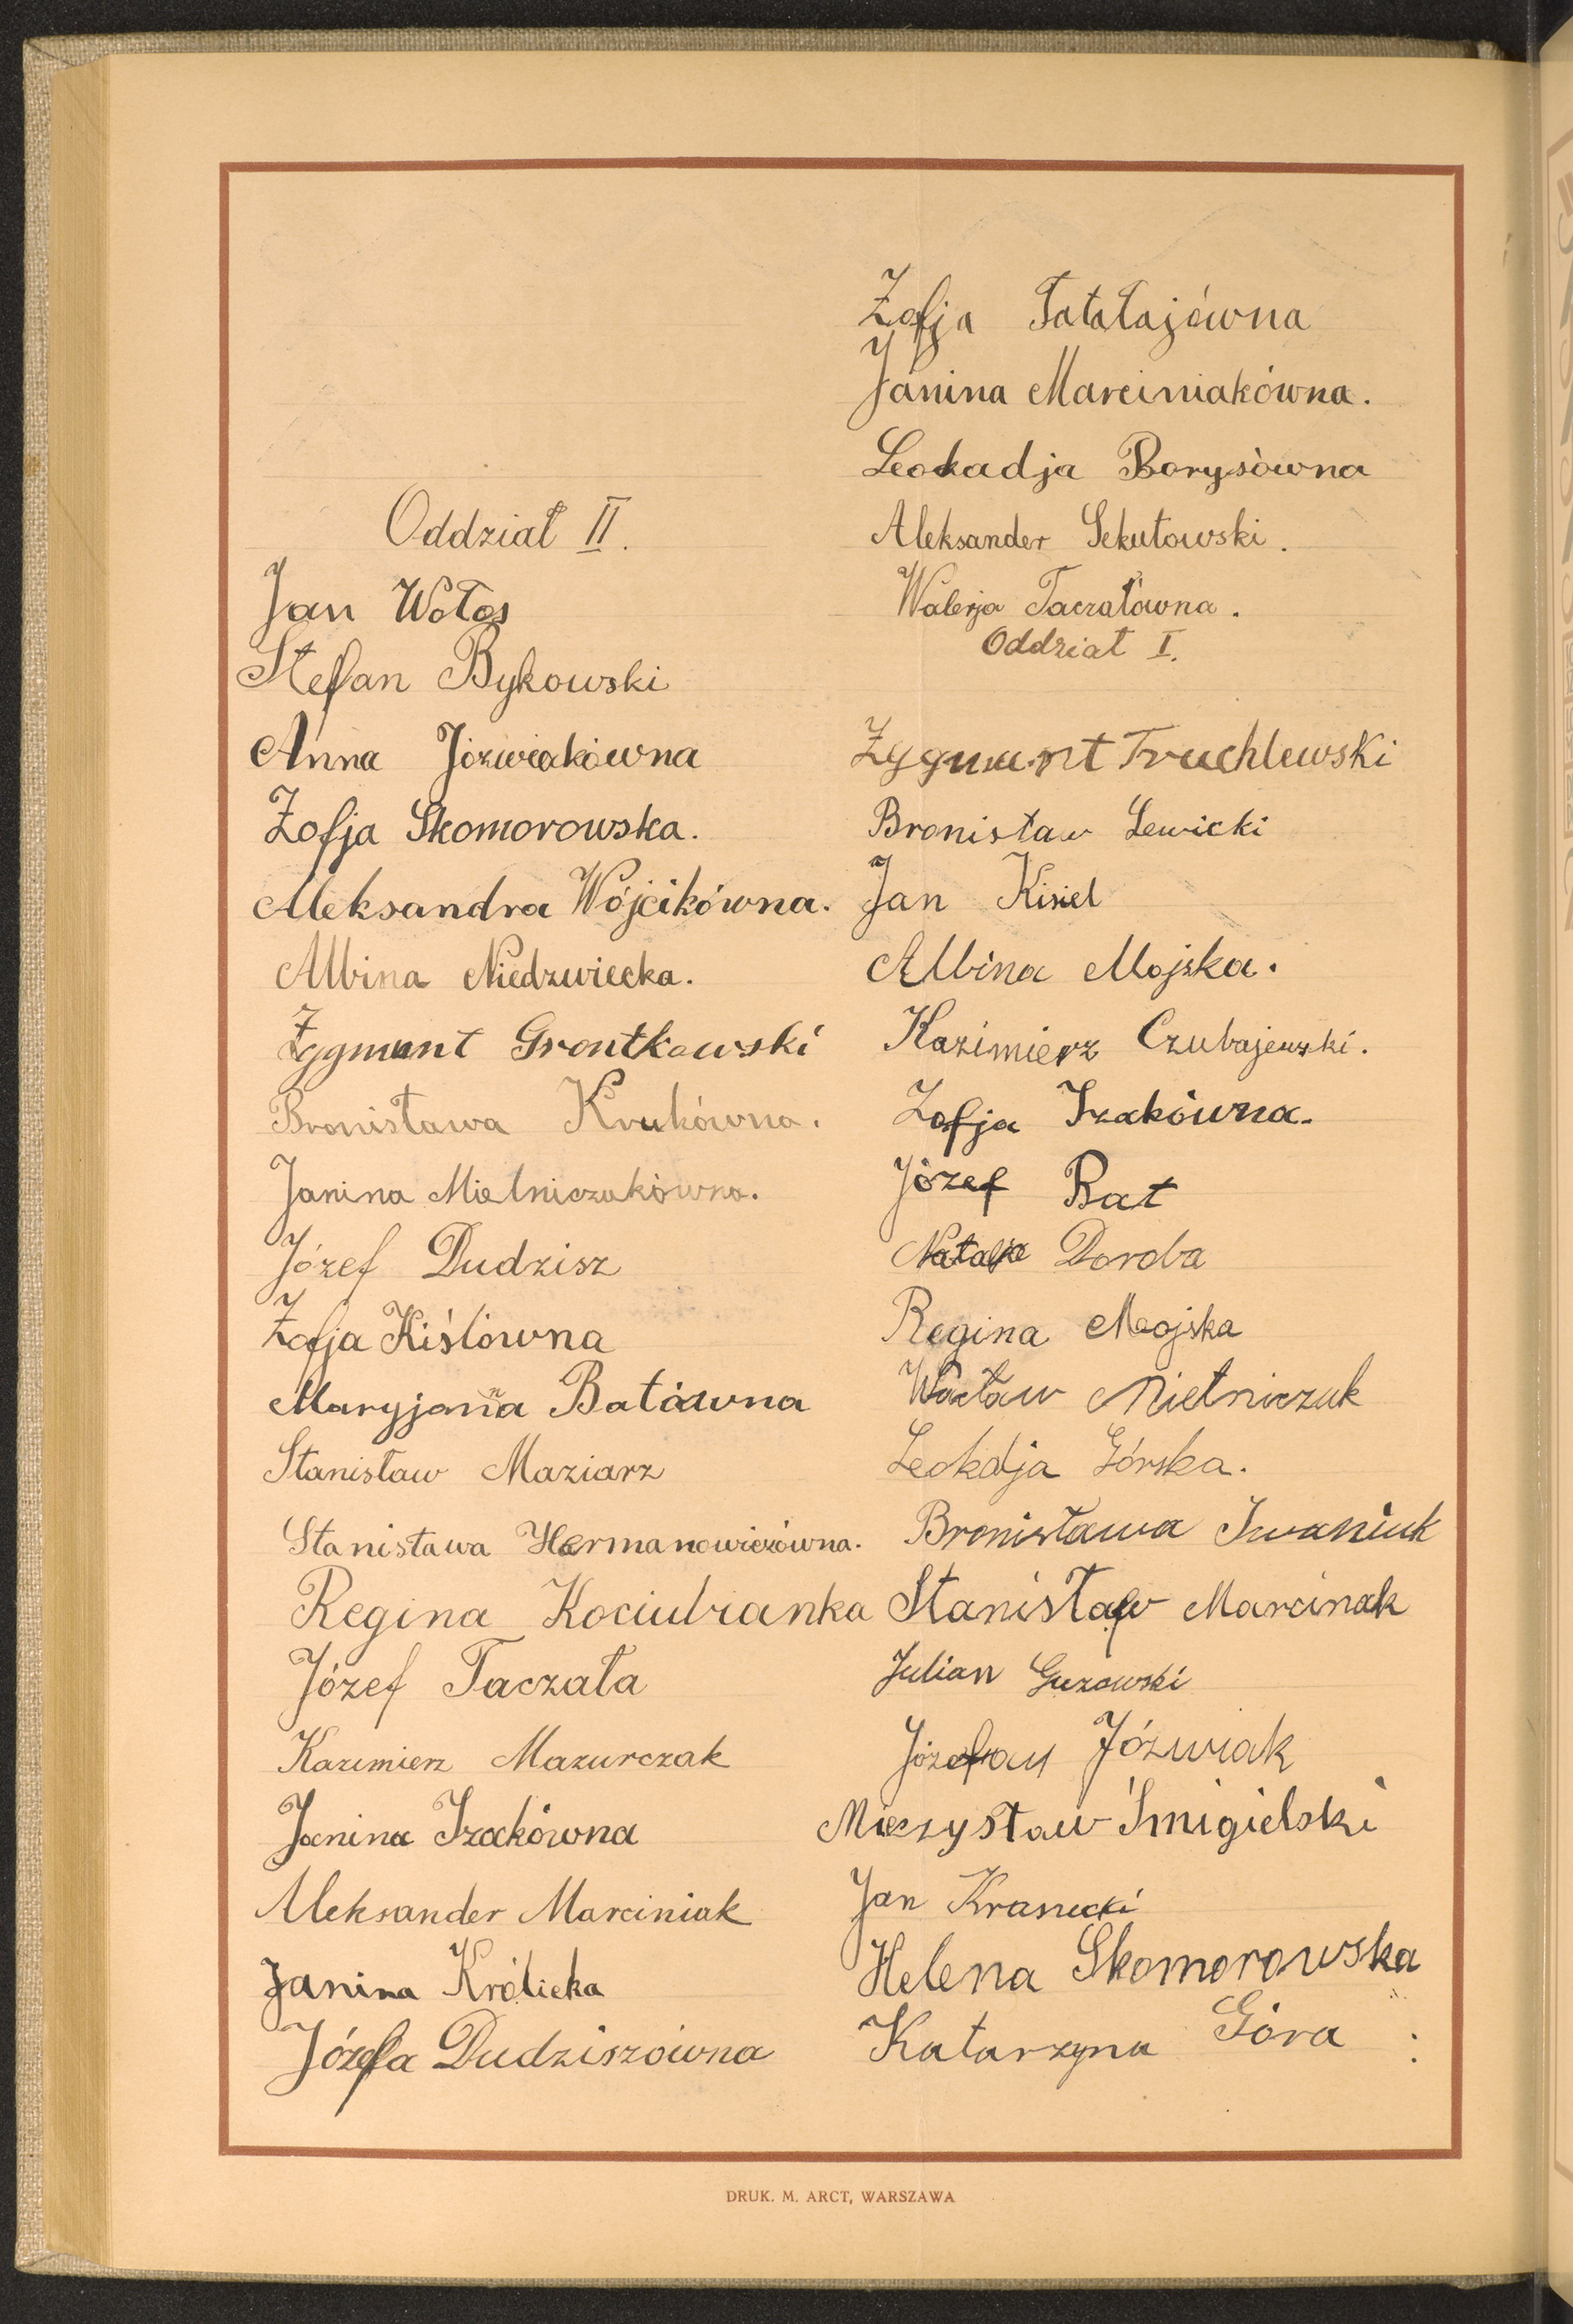 Oddział II.
Jan Wołos
Stefan Bykowski
Anna Józwiakówna
Zofja Skomorowska.
Aleksandra Wójcikówna.
Albina Niedzwiecka.
Zygmunt Grontkowski
Bronisława Krukówna.
Janina Mielniczukówna.
Józef Dudzisz
Zofja Kiślówna
Maryjanna Batówna
Stanisław Maziarz
Stanisława Hermanowiczówna.
Regina Kociubianka
Józef Taczała
Kazimierz Mazurczak
Janina Izakówna
Aleksander Marciniak
Janina Królicka
Józefa Dudziszówna
Zofja Tatałajówna
Janina Marciniakówna.
Leokadja Borysówna
Aleksander Sekutowski.
Walerja Taczałówna.
Oddział I.
Zygmunt Truchlewski
Bronisław Lewicki
Jan Kisiel
Albina Mojska.
Kazimierz Czubajewski.
Zofja Izakówna.
Józef Bat
Natalja Doroba
Regina Mojska
Wacław Mielniczuk
Leokdja Górska.
Bronisława Iwaniuk
Stanisław Marcinak
Julian Guzowski
Józwiak
Mieczysław Śmigielski
Jan Krasucki
Helena Skomorowska
Katarzyna Góra
DRUK. M. ARCT, WARSZAWA